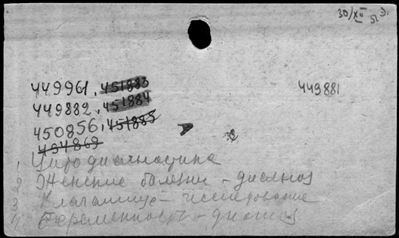 30/XII 51 г.
449961, 451883
449882, 451884
450856, 451885
449881
454869
1 Цитодиагностика
2 Женские болезни - диагноз
3 Влагалище - исследование
4 Беременность - диагноз